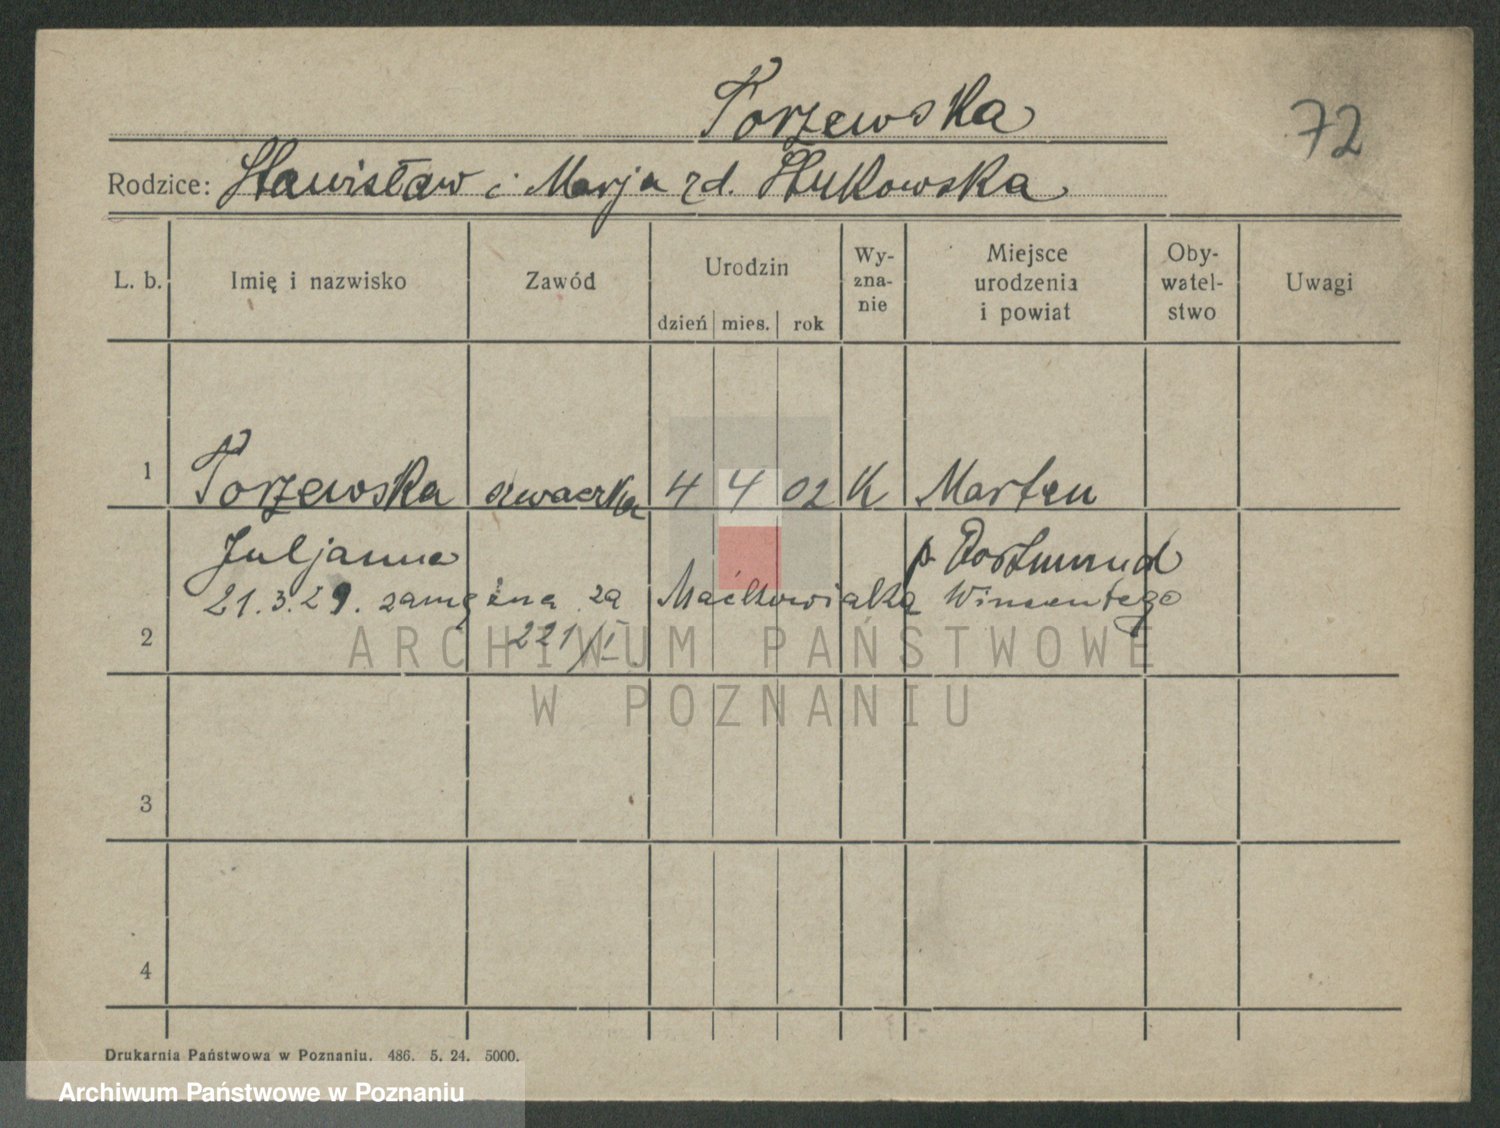 Torzewska
72
Rodzice: Stanisław i Marja zd. Stukowska
L. b. Imię i nazwisko Zawód Urodzin dzień mies. rok Wy-zna-nie Miejsce urodzenia i powiat Oby-watel-stwo Uwagi
1 Torzewska szwaczka 4 4 02 K Marten
Juljanna p. Dortmund
21.3.29. zamężna za Maćkowiaka Winsentego
2 221/I
ARCHIWUM PAŃSTWOWE
W POZNANIU
3
4
Drukarnia Państwowa w Poznaniu. 486. 5. 24. 5000.
Archiwum Państwowe w Poznaniu